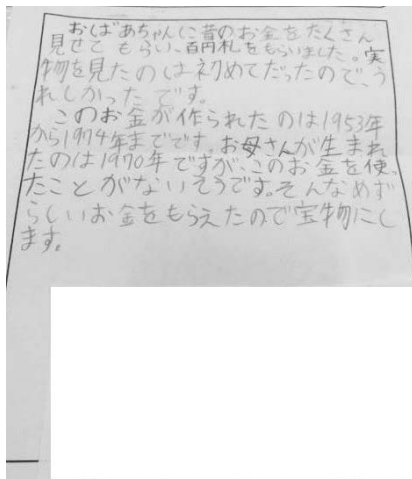 おばあちゃんに昔のお金をたくさん
見せてもらい、百円札をもらいました。実
物を見たのは初めてだったので、う
れしかったです。
このお金が作られたのは1953年
から1974年までです。お母さんが生まれ
たのは1970年ですが、このお金を使っ
たことがないそうです。そんなめず
らしいお金をもらえたので宝物にし
ます。